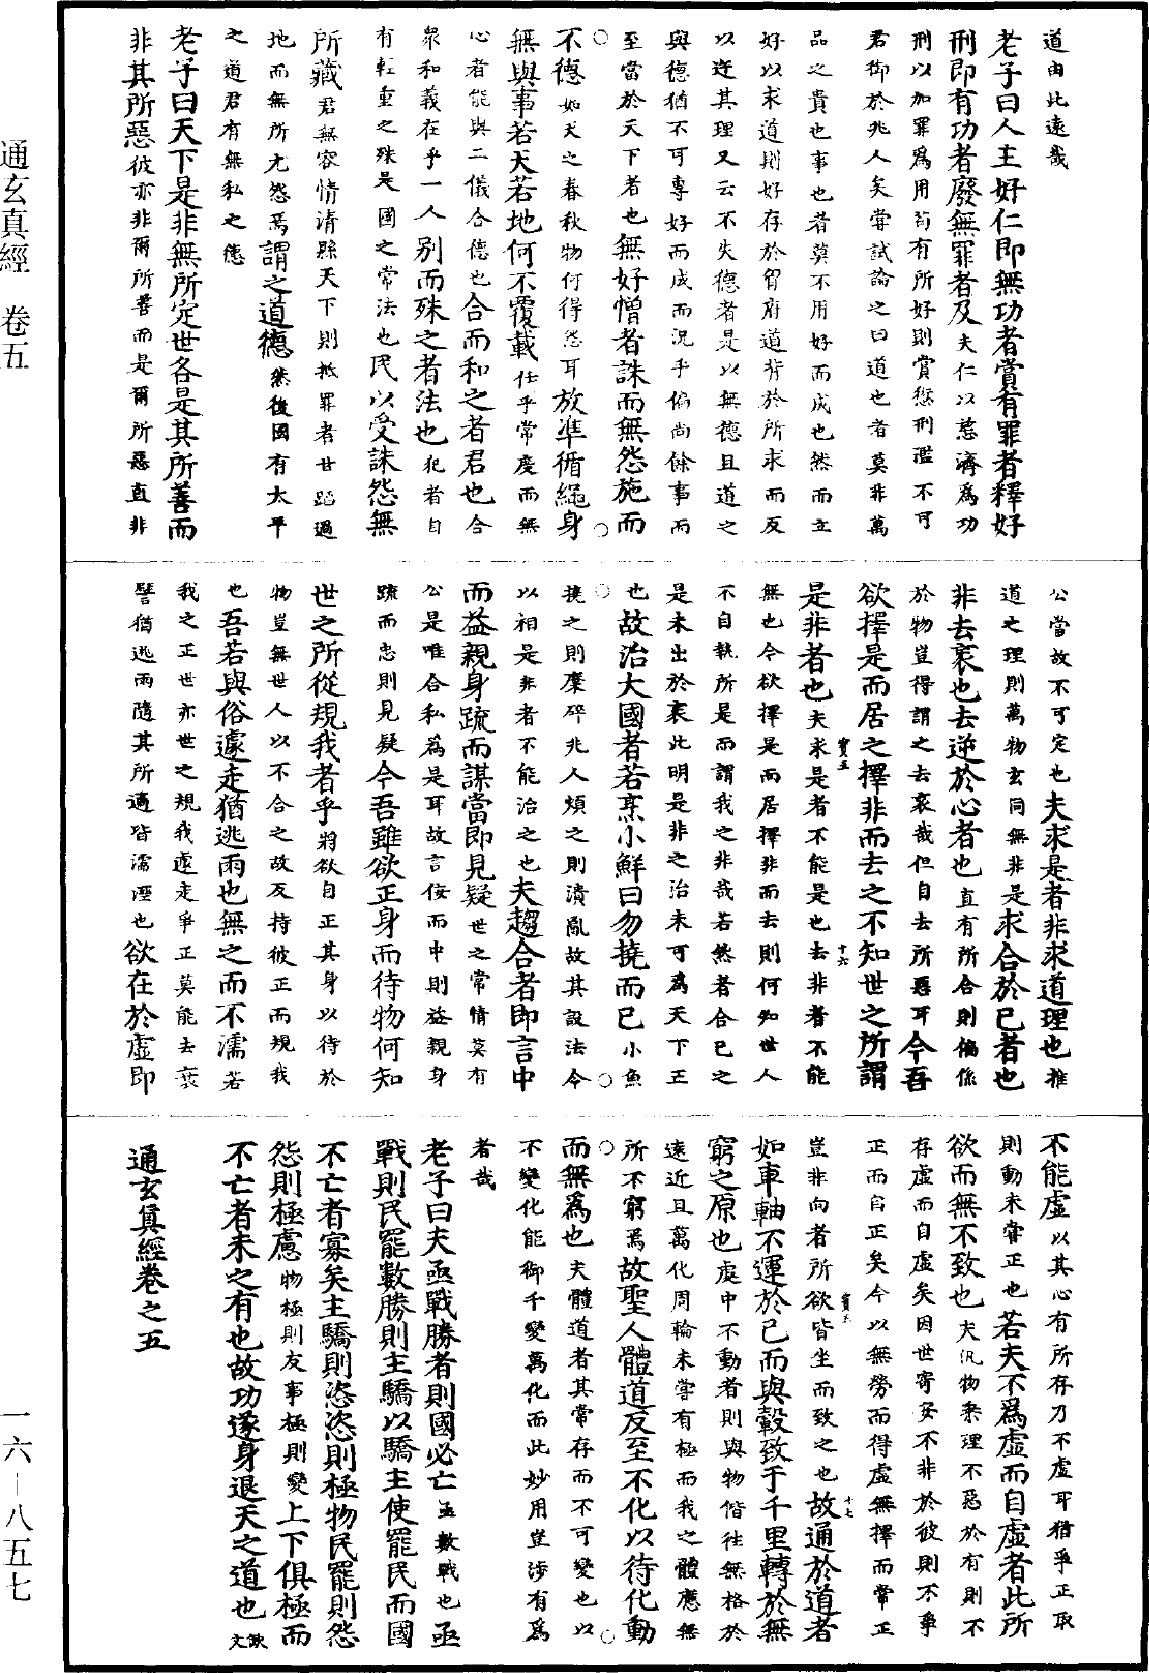 道由此遠哉
老子曰人主好仁即無功者賞有罪者釋好
刑即有功者廢無罪者及夫仁以慈濟為功
刑以加罪為用苟有所好則賞愆刑濫不可
君御於兆人矣嘗試論之曰道也者莫非萬
品之貴也事也者莫不用好而成也然而立
好以求道則好存於胷府道背於所求而反
以迕其理又云不失德者是以無德且道之
與德猶不可專好而成而況乎偏尚餘事而
至當於天下者也無好憎者誅而無怨施而
不德如天之春秋物何得怨耳放準循繩身
無與事若天若地何不覆載任乎常度而無
心者能與二儀合德也合而和之者君也合
衆和義在乎一人別而殊之者法也犯者自
有輕重之殊是國之常法也民以受誅怨無
所藏君無容情清縣天下則抵罪者甘蹈過
地而無所尤怨焉謂之道德然後國有太平
之道君有無私之德
老子曰天下是非無所定世各是其所善而
非其所惡彼亦非爾所善而是爾所惡直非
公當故不可定也夫求是者非求道理也推
道之理則萬物玄同無非是求合於己者也
非去衺也去逆於心者也直有所合則偏係
於物豈得謂之去衺哉但自去所惡耳今吾
欲擇是而居之擇非而去之不知世之所謂
是非者也夫求是者不能是也去非者不能
無也今欲擇是而居擇非而去則何知世人
不自執所是而謂我之非哉若然者合己之
是未出於衺此明是非之治未可為天下正
也故治大國者若烹小鮮曰勿撓而已小魚
撓之則糜碎兆人煩之則潰亂故其設法令
以相是非者不能治之也夫趨合者即言中
而益親身疏而謀當即見疑世之常情莫有
公是唯合私為是耳故言佞而中則益親身
疏而忠則見疑今吾雖欲正身而待物何知
世之所從規我者乎將欲自正其身以待於
物豈無世人以不合之故反持彼正而規我
也吾若與俗遽走猶逃雨也無之而不濡若
我之正世亦世之規我遽走爭正莫能去衺
譬猶逃雨隨其所適皆濡溼也欲在於虛即
不能虛以其心有所存乃不虛耳猶爭正取
則動未甞正也若夫不為虛而自虛者此所
欲而無不致也夫汎物乘理不惡於有則不
存虛而自虛矣因世寄安不非於彼則不爭
正而自正矣今以無勞而得虛無擇而常正
豈非向者所欲皆坐而致之也故通於道者
如車軸不運於己而與轂致于千里轉於無
窮之原也處中不動者則與物偕往無格於
遠近且萬化周輪未嘗有極而我之體應無
所不窮焉故聖人體道反至不化以待化動
而無為也夫體道者其常存而不可變也以
不變化能御千變萬化而此妙用豈涉有為
者哉
老子曰夫亟戰勝者則國必亡亟數戰也亟
戰則民罷數勝則主驕以驕主使罷民而國
不亡者寡矣主驕則恣恣則極物民罷則怨
怨則極慮物極則反事極則變上下俱極而
不亡者未之有也故功遂身退天之道也文缺
通玄真經卷之五
通玄真經 卷五
一六—八五七